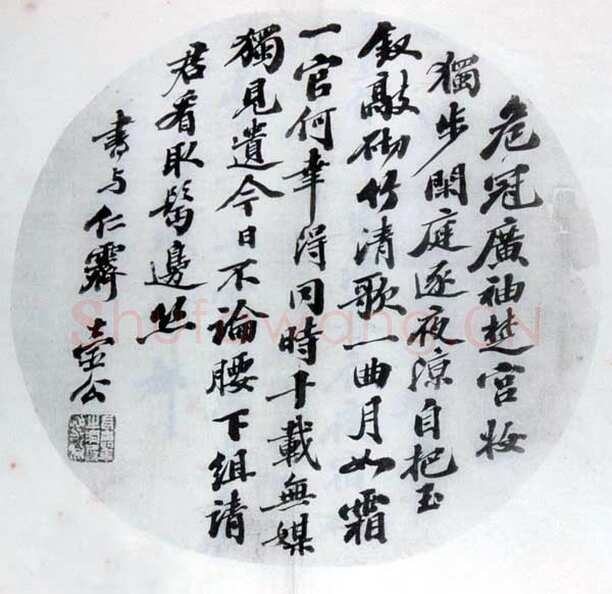 危冠廣袖楚宮妝
獨步閑庭逐夜涼自把玉
釵敲砌竹清歌一曲月如霜
一官何幸得同時十載無媒
獨見遺今日不論腰下組請
君看取鬢邊絲
書与仁霽 公
Shufawang.CN